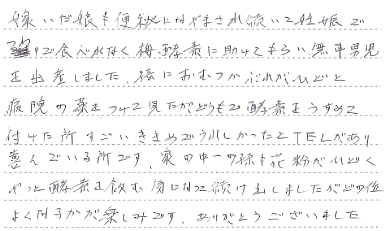 嫁いだ娘も便秘になやまされ続いて妊娠で
つわりで食べれなく梅酵素に助けてもらい無事男児
を出産しました。孫におむつかぶれがひどく
病院の薬をつけて見たがどうも?で酵素をうすめて
付けた所すごいききめでうれしかったとTELがあり
喜んでいる所です。家の中一の孫も花粉がひどく
やっと酵素を飲む気になって続け出しましたがどの位
よくなるかが楽しみです。ありがとうございました